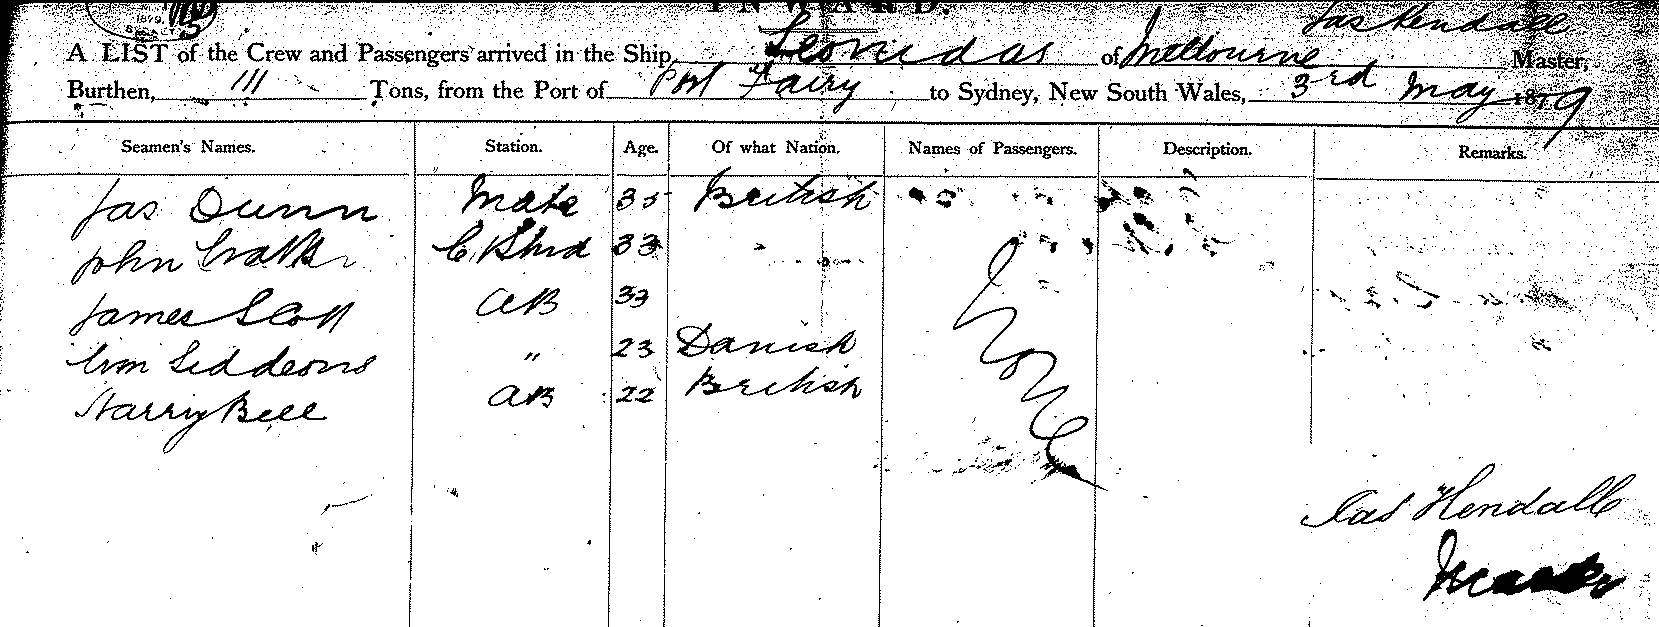 INWARD.
1879.
Jas Kendall
A LIST of the Crew and Passengers arrived in the Ship Leonidas of Melbourne Master,
Burthen, 111 Tons, from the Port of Port Fairy to Sydney, New South Wales, 3rd May 1879
Seamen's Names. Station. Age. Of what Nation. Names of Passengers. Description. Remarks.
Jas Dunn Mate 35 British
John 33 "
James Scott AB 33
Wm Siddeons " 23 Danish
Harry Bell AB 22 British
None
Jas Kendall
Master